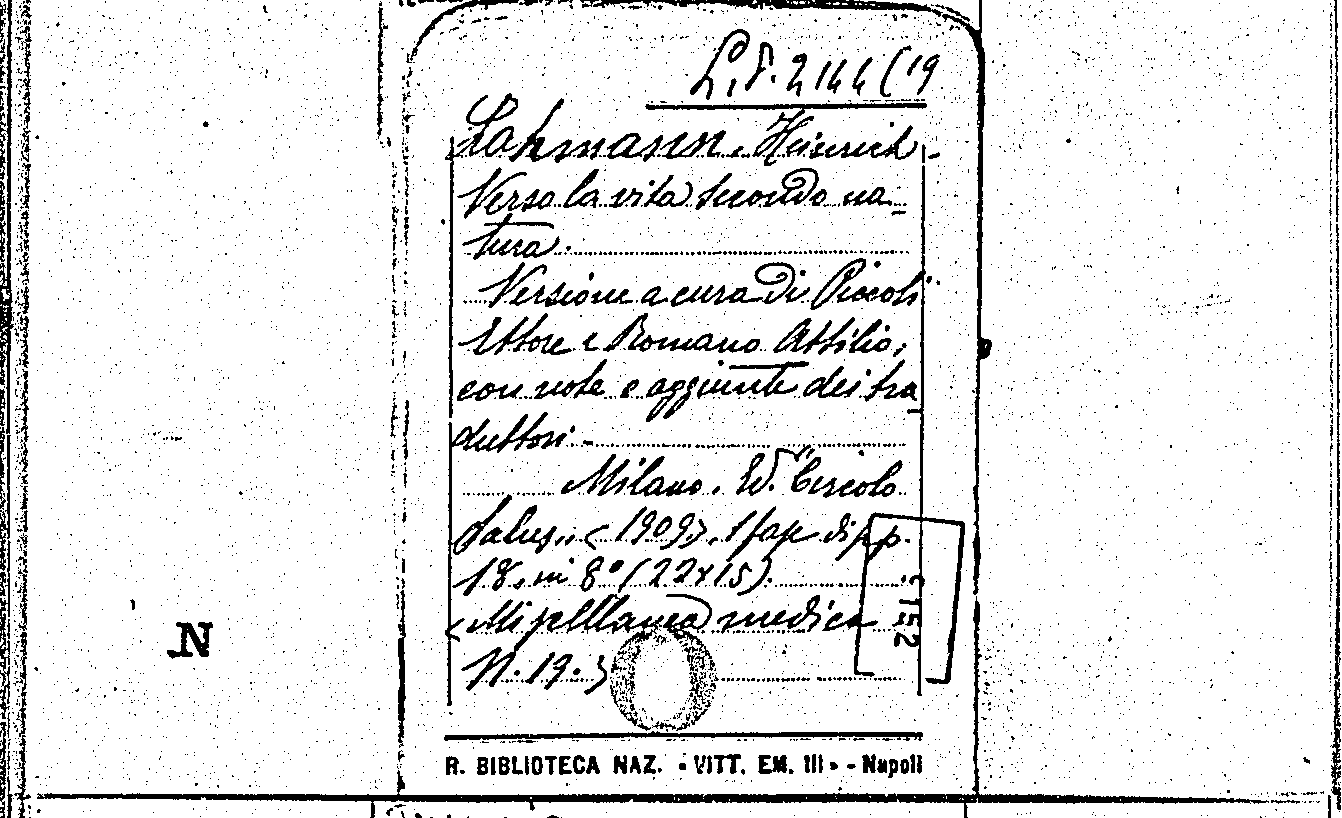 L.P. 2144 (19
Lahmann, Heinrich.
Verso la vita secondo na-
tura.
Versione a cura di Piccoli
Ettore e Romano Attilio,
con note e aggiunte dei tra
duttori -
Milano. Ed. "Circolo
Salus,, < 1909>. 1 fasc di pp.
18, in 8° (22x15).
<Miscellanea medica
N. 19.>
N
R. BIBLIOTECA NAZ. « VITT. EM. III» - Napoli